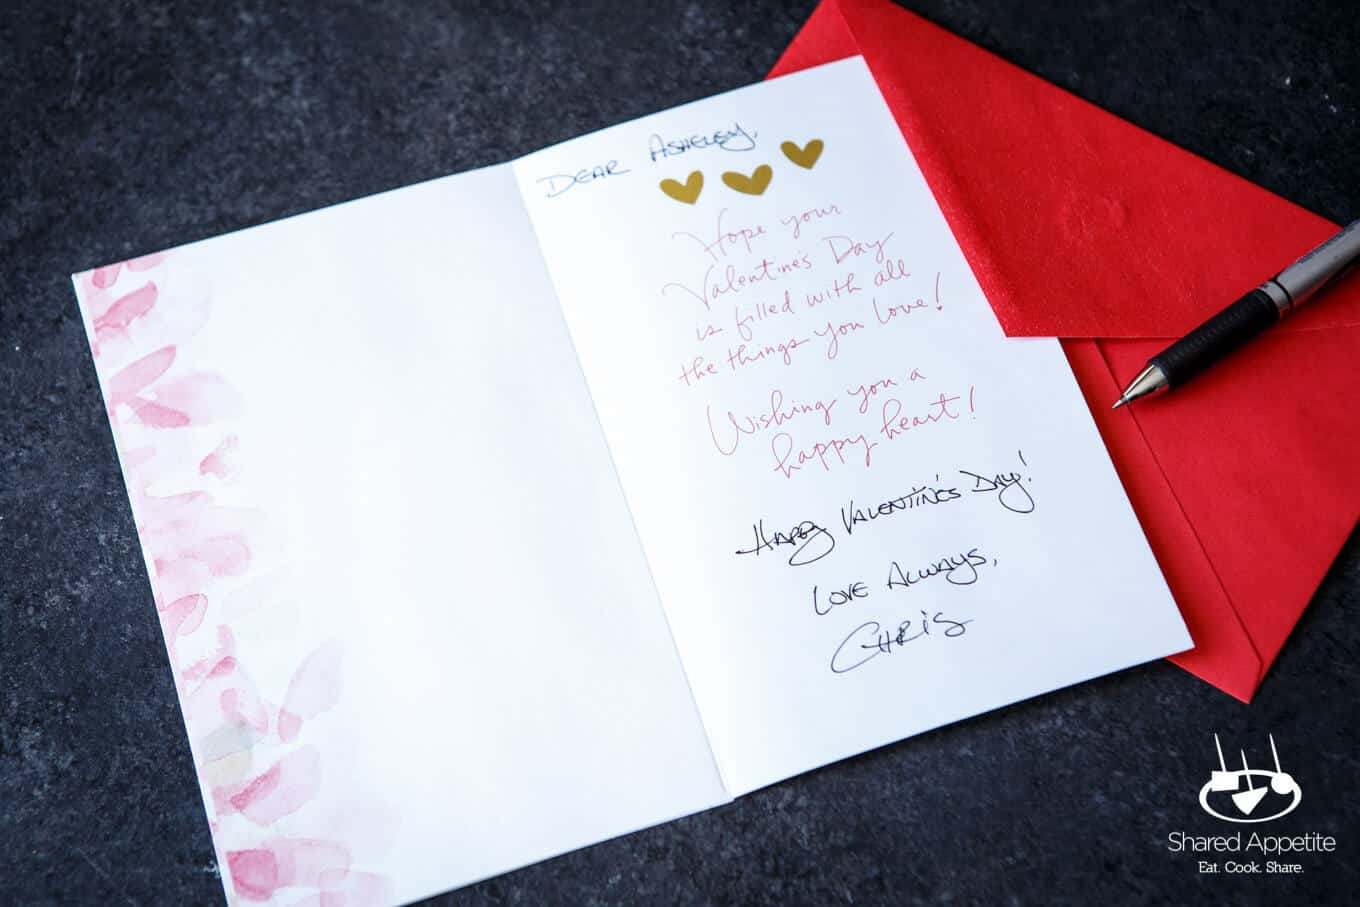 DEAR ASHELEY,
Hope your
Valentine's Day
is filled with all
the things you love!
Wishing you a
happy heart!
HAPPY VALENTINE'S DAY!
LOVE ALWAYS,
CHRIS
Shared Appetite
Eat. Cook. Share.